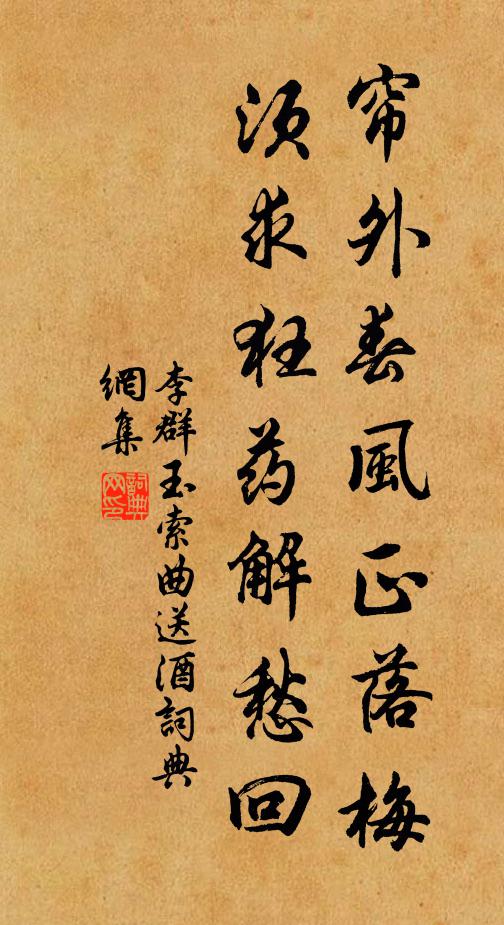 帘外春風正落梅
須求狂药解愁回
李群玉索曲送酒詞典
網集
詞典
网印